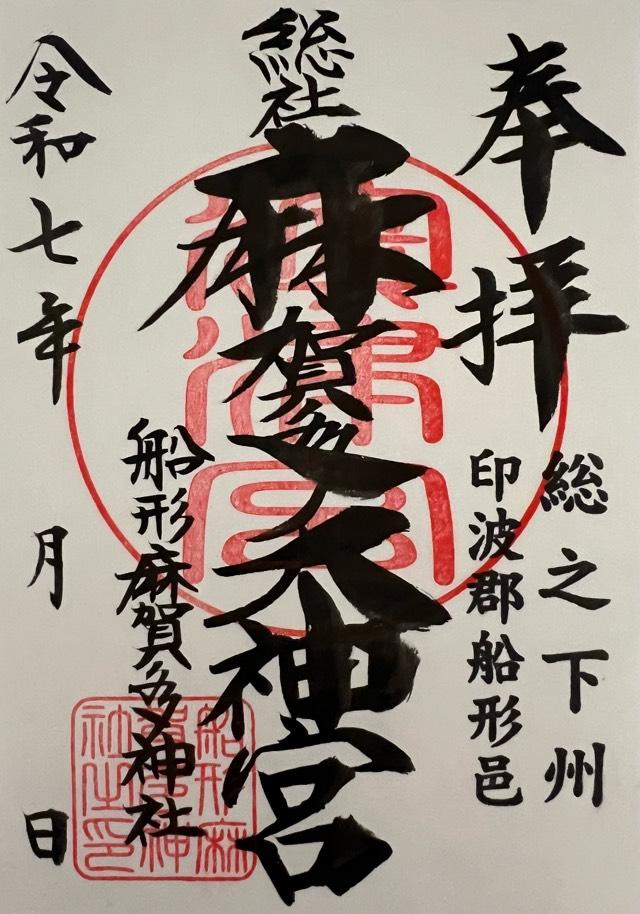 奉拝
総之下州
印波郡船形邑
総社
麻賀多大神宮
船形麻賀多神社
令和七年 月 日
船形麻
賀多神
社之印